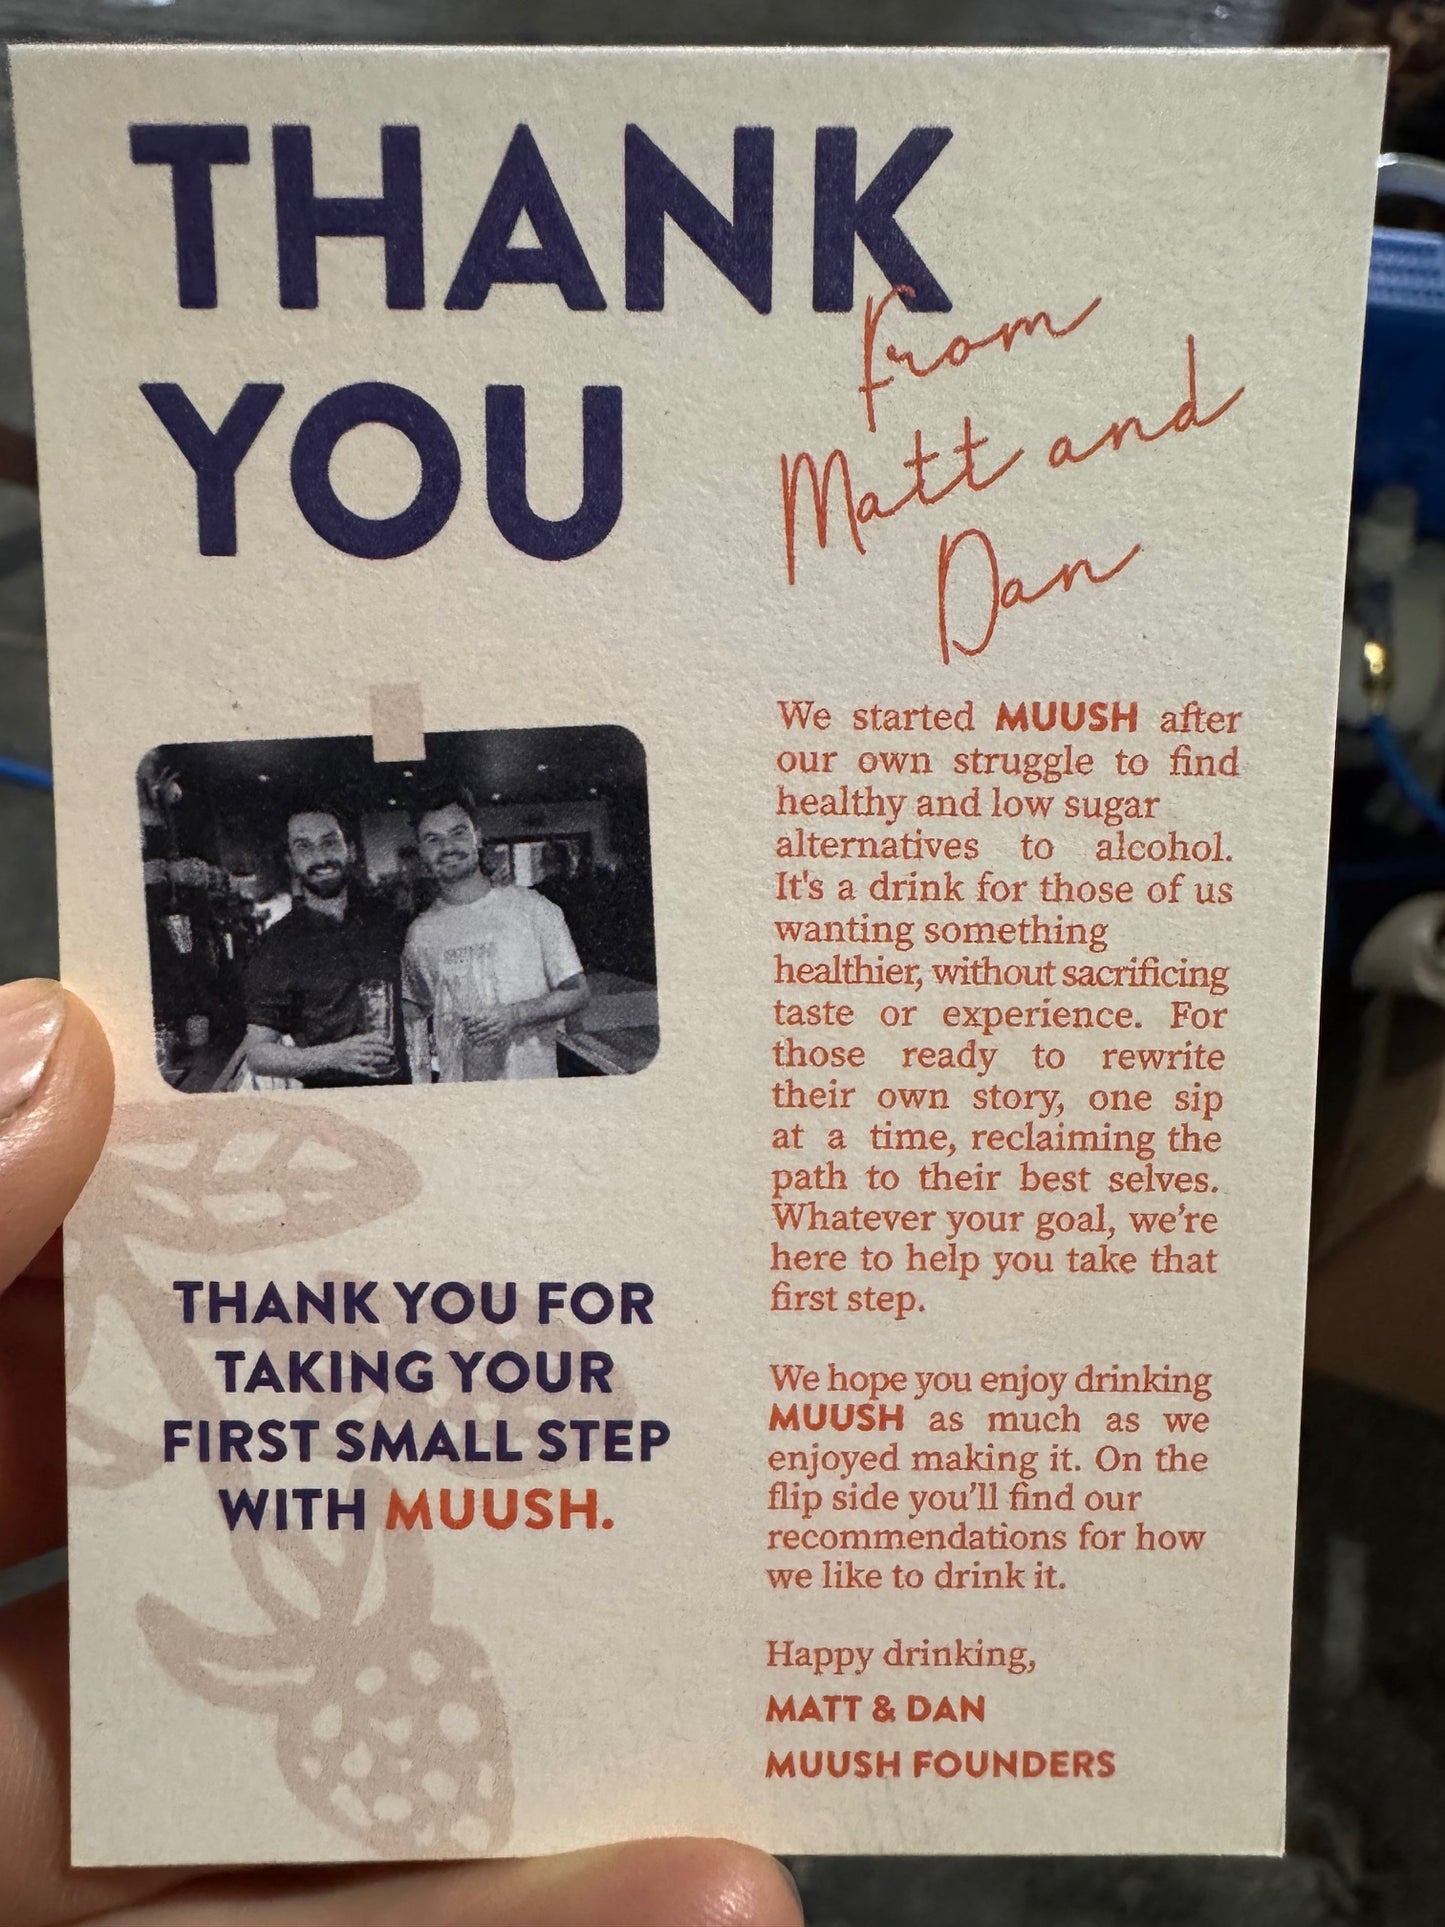 THANK
YOU
From
Matt and
Dan
We started MUUSH after
our own struggle to find
healthy and low sugar
alternatives to alcohol.
It's a drink for those of us
wanting something
healthier, without sacrificing
taste or experience. For
those ready to rewrite
their own story, one sip
at a time, reclaiming the
path to their best selves.
Whatever your goal, we’re
here to help you take that
first step.
We hope you enjoy drinking
MUUSH as much as we
enjoyed making it. On the
flip side you’ll find our
recommendations for how
we like to drink it.
Happy drinking,
MATT & DAN
MUUSH FOUNDERS
THANK YOU FOR
TAKING YOUR
FIRST SMALL STEP
WITH MUUSH.